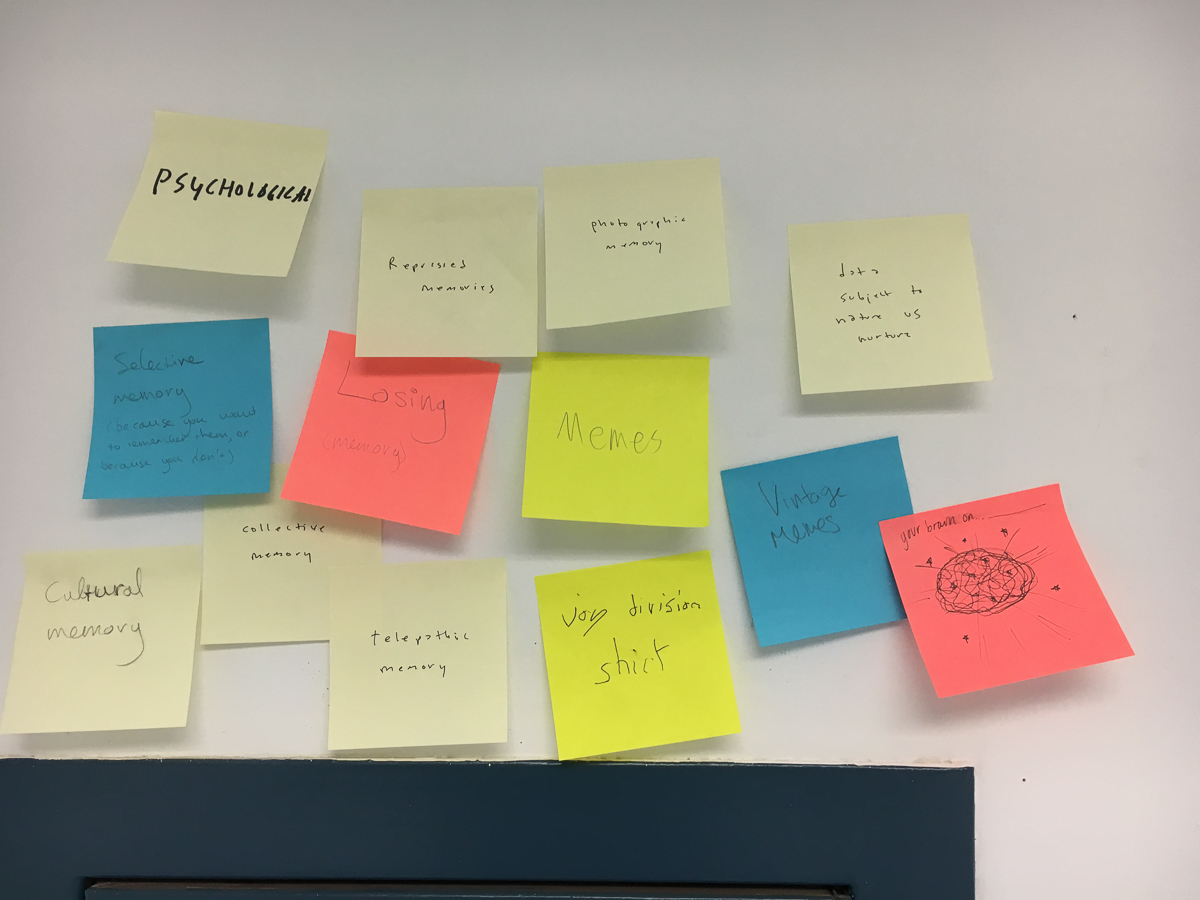 PSYCHOLOGICAL
Repressed
memories
photographic
memory
data
subject to
nature vs
nurture
Selective
memory
(because you want
to remember them, or
because you don't)
Losing
(memory)
Memes
Vintage
Memes
your brain on...
collective
memory
Cultural
memory
telepathic
memory
joy division
shirt